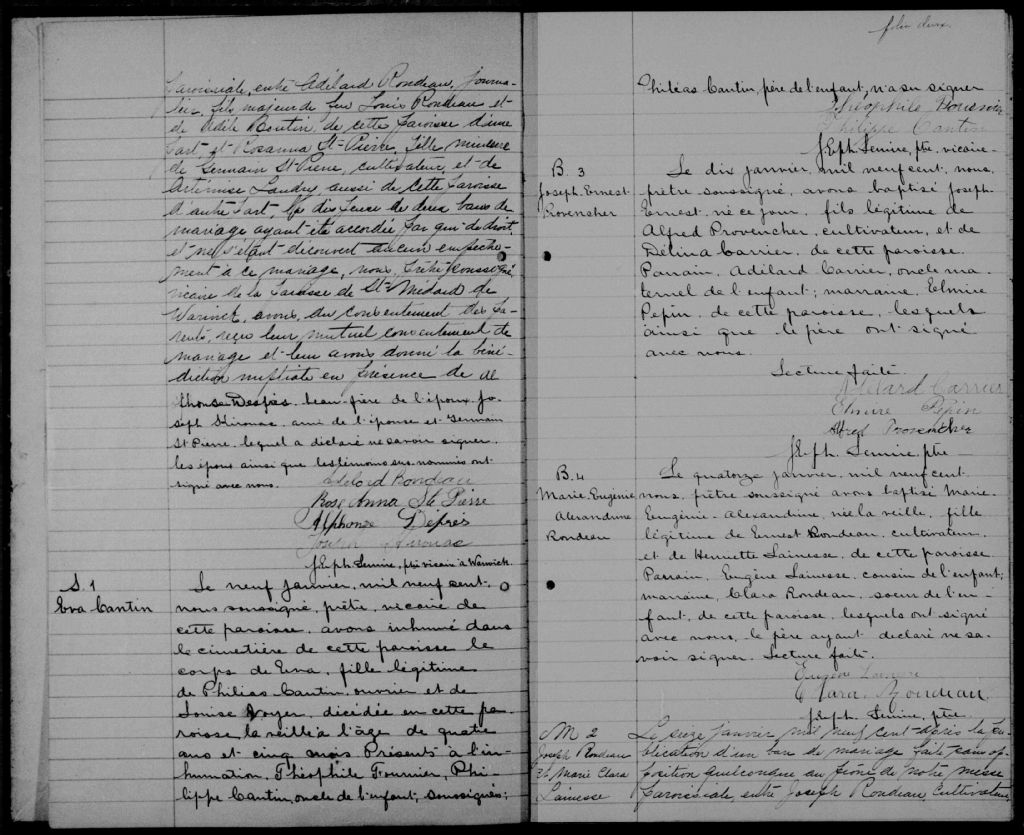 paroissiale, entre Adélard Rondeau, journa-
lier, fils majeur de feu Louis Rondeau et
de Adèle Boutin de cette paroisse d'une
part, et Rosanna St-Pierre, fille mineure
de Germain St-Pierre, cultivateur, et de
Artémise Landry aussi de cette paroisse
d'autre part, la dispense de deux bans de
mariage ayant été accordée par qui de droit
et ne s'étant découvert aucun empêche-
ment à ce mariage, nous, prêtre soussigné
vicaire de la paroisse de St-Médard de
Warwick, avons, du consentement des pa-
rents, reçu leur mutuel consentement de
mariage et leur avons donné la béné-
diction nuptiale en présence de Al
phonse Després, beau-frère de l'époux, Jo-
seph Kirouac, ami de l'épouse et Germain
St Pierre, lequel a déclaré ne savoir signer,
les époux ainsi que les témoins sus-nommés ont
signé avec nous.
Adelard Rondeau
Rose Anna St Pierre
Alphonse Déprés
Joseph Kirouac
J. Eph. Lemire, ptre vicaire à Warwick.
S. 1
Eva Cantin
Le neuf janvier, mil neuf cent,
nous soussigné, prêtre, vicaire de
cette paroisse, avons inhumé dans
le cimetière de cette paroisse le
corps de Eva, fille légitime
de Philias Cantin, ouvrier et de
Louise Voyer, décédée en cette pa-
roisse la veille à l'âge de quatre
ans et cinq mois. Présents à l'in-
humation, Théophile Fournier, Phi-
lippe Cantin, oncle de l'enfant, soussignés;
folio deux.
Philéas Cantin, père de l'enfant, n'a su signer
Théophile
Philippe Cantin
J. Eph. Lemire, ptre, vicaire-
B. 3
Joseph-Ernest
Provencher
Le dix janvier, mil neuf cent, nous,
prêtre soussigné, avons baptisé Joseph-
Ernest, né ce jour, fils légitime de
Alfred Provencher, cultivateur, et de
Délina Carrier, de cette paroisse.
Parrain, Adélard Carrier, oncle ma-
ternel de l'enfant; marraine, Elmire
Pepin, de cette paroisse, lesquels
ainsi que le père ont signé
avec nous.
Lecture faite.
Adelard Carrier
Elmire Pepin
Alfred Provencher
J. Eph. Lemire, ptre
B. 4
Marie-Eugénie
Alexandrine
Rondeau
Le quatorze janvier, mil neuf cent,
nous, prêtre soussigné avons baptisé Marie-
Eugénie-Alexandrine, née la veille, fille
légitime de Ernest Rondeau, cultivateur
et de Henriette Lainesse, de cette paroisse.
Parrain, Eugène Lainesse, cousin de l'enfant;
marraine, Clara Rondeau, soeur de l'en-
fant, de cette paroisse, lesquels ont signé
avec nous, le père ayant déclaré ne sa-
voir signer. Lecture faite.
Eugène
Clara Rondeau
J. Eph. Lemire, ptre.
M 2
Joseph Rondeau
et Marie Clara
Lainesse
Le seize janvier mil neuf cent après la pu-
blication d'un ban de mariage faite sans op-
position quelconque au prône de notre messe
paroissiale, entre Joseph Rondeau, cultivateur,